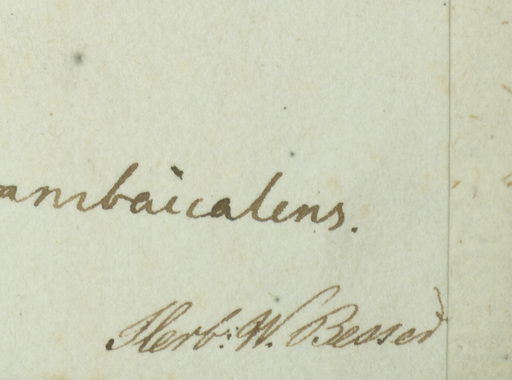 ambaicalens.
Herb: W. Besser